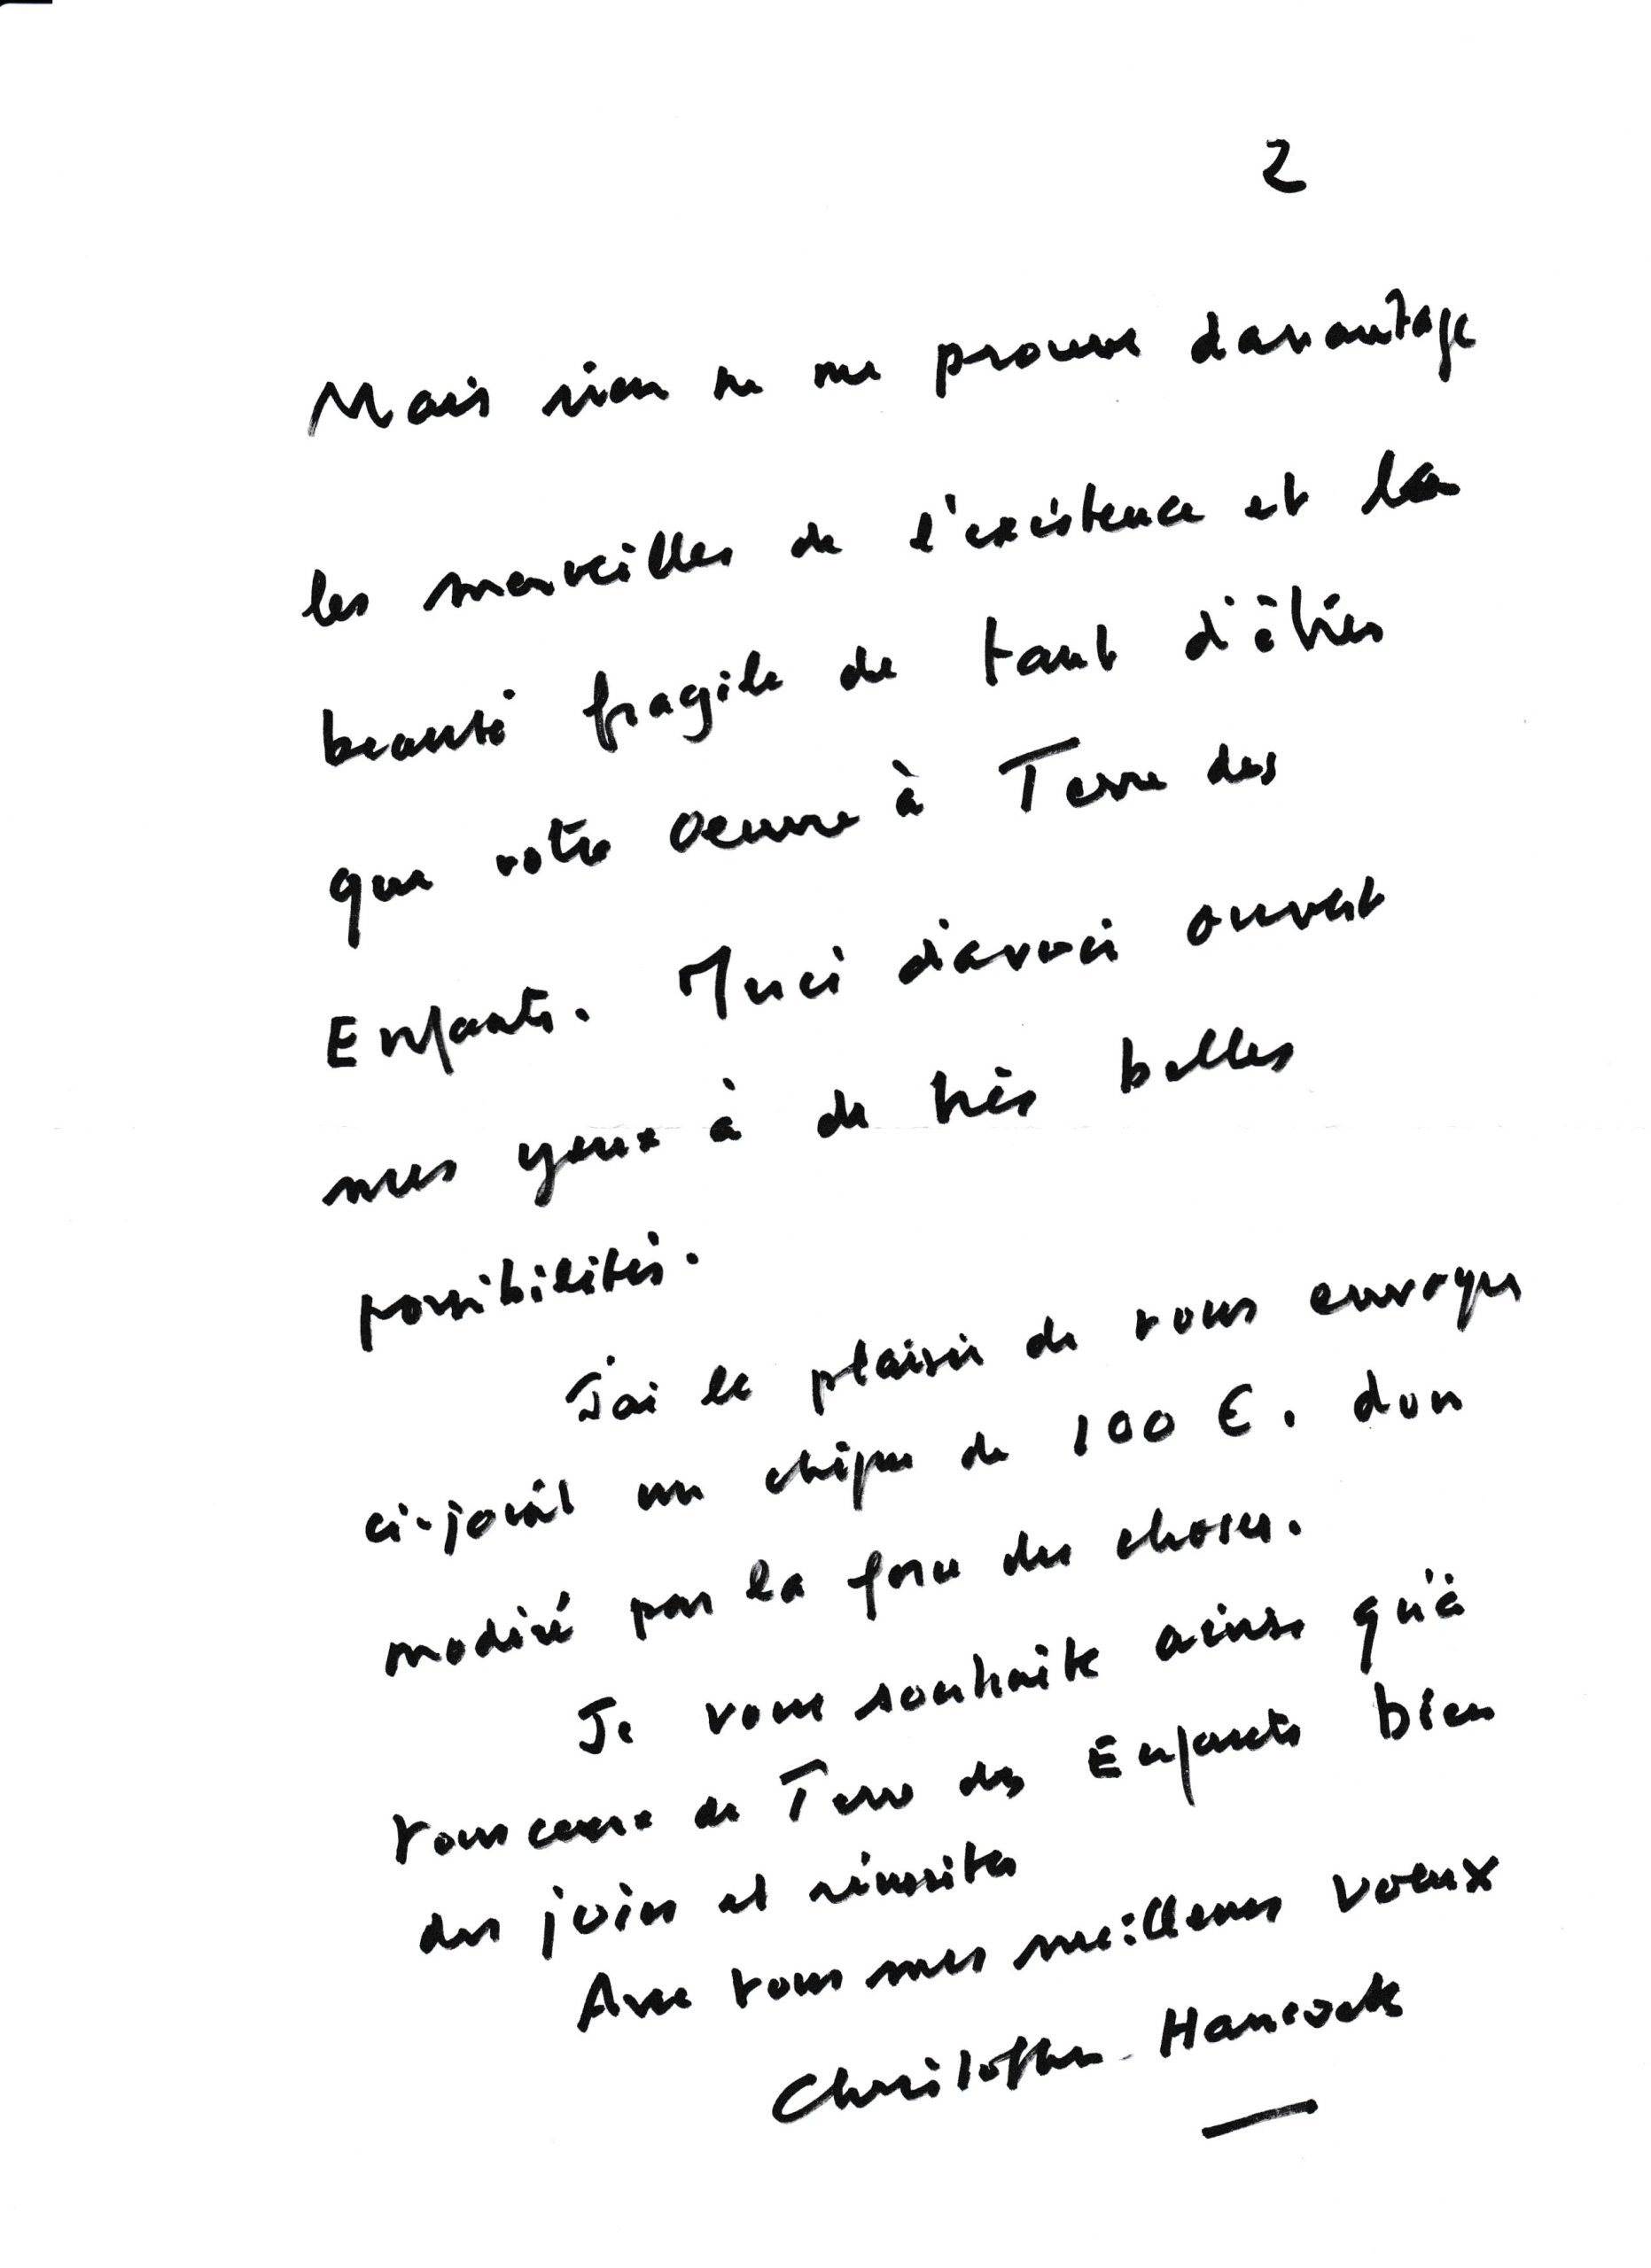 2
Mais rien ne me prouve davantage
les merveilles de l'existence et la
beauté fragile de tant d'êtres
que votre oeuvre à Terre des
Enfants. Merci d'avoir ouvert
mes yeux à de très belles
possibilités.
J'ai le plaisir de vous envoyer
ci-joint un chèque de 100 €. don
modéré par la force des choses.
Je vous souhaite ainsi qu'à
tous ceux de Terre des Enfants bien
des joies et réussites
Avec tous mes meilleurs voeux
Christopher Hancock